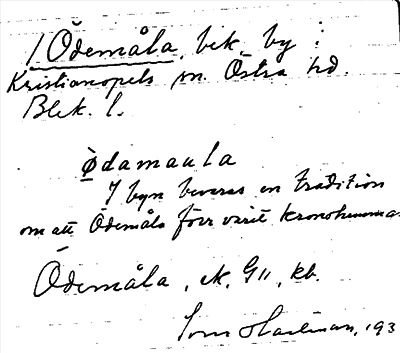 1 Ödemåla, bik. by i
Kristianopels sn. Östra hd.
Blek. l.
ödamaula
I byn bevaras en tradition
om att Ödemåla förr varit kronohemman
Ödemåla, ek. G11, kb.
Hartman, 193